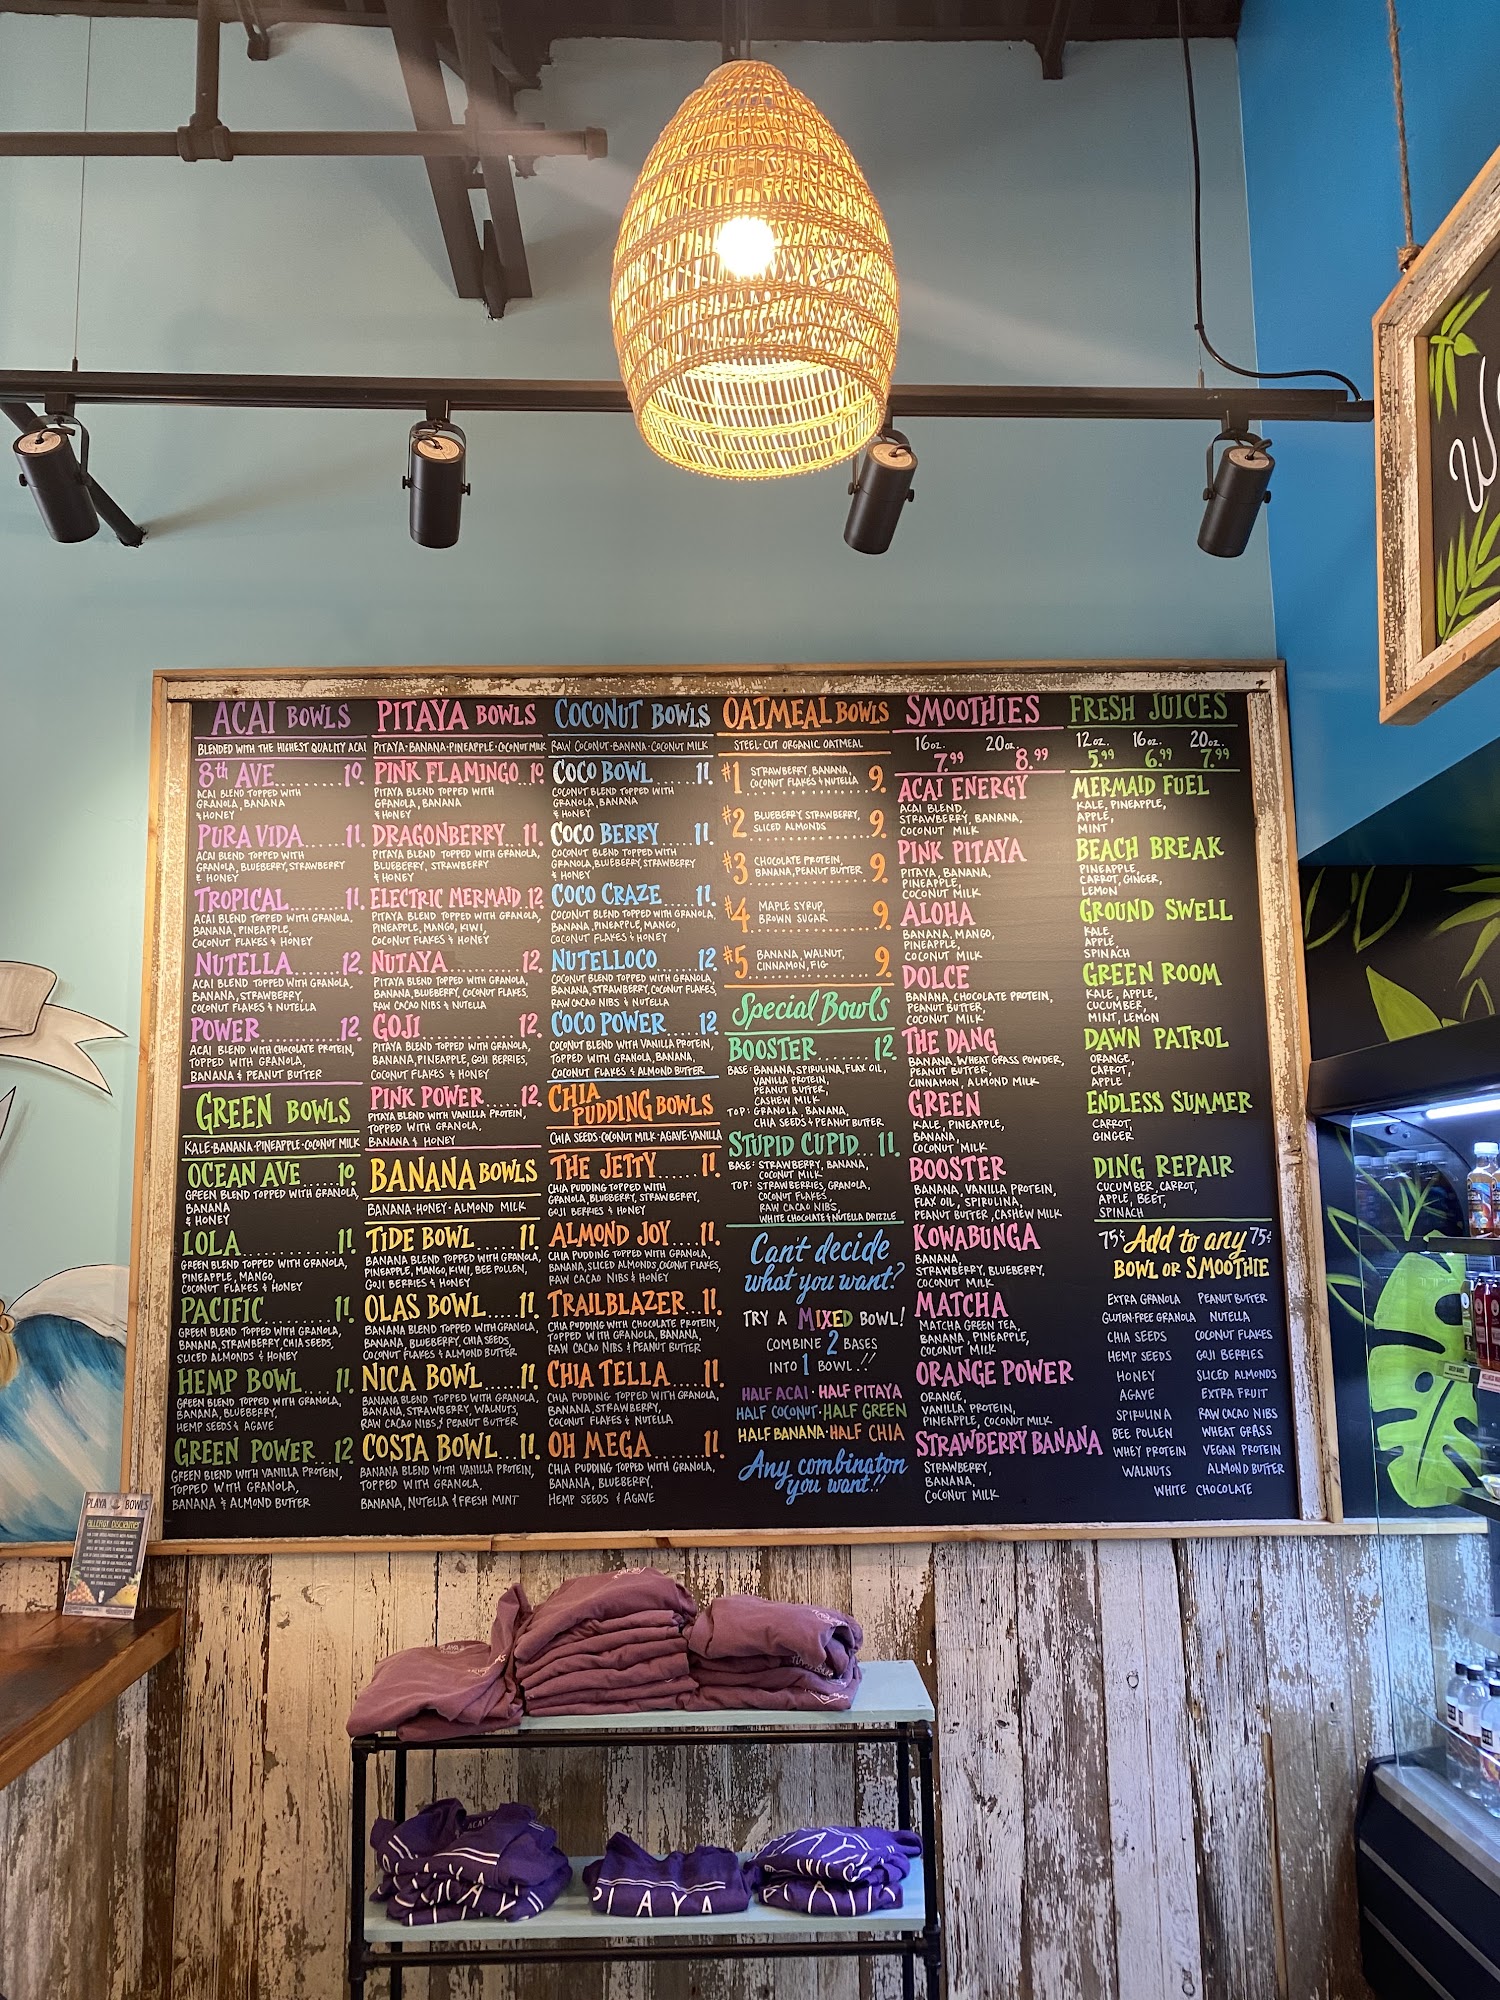 ACAI BOWLS
BLENDED WITH THE HIGHEST QUALITY ACAI
8th AVE........10.
ACAI BLEND TOPPED WITH
GRANOLA, BANANA
& HONEY
PURA VIDA......11.
ACAI BLEND TOPPED WITH
GRANOLA, BLUEBERRY, STRAWBERRY
& HONEY
TROPICAL.......11.
ACAI BLEND TOPPED WITH GRANOLA,
BANANA, PINEAPPLE,
COCONUT FLAKES & HONEY
NUTELLA......12.
ACAI BLEND TOPPED WITH GRANOLA,
BANANA, STRAWBERRY,
COCONUT FLAKES & NUTELLA
POWER.........12.
ACAI BLEND WITH CHOCOLATE PROTEIN,
TOPPED WITH GRANOLA,
BANANA & PEANUT BUTTER
GREEN BOWLS
KALE·BANANA·PINEAPPLE·COCONUT MILK
OCEAN AVE .....10.
GREEN BLEND TOPPED WITH GRANOLA,
BANANA
& HONEY
LOLA............11.
GREEN BLEND TOPPED WITH GRANOLA,
PINEAPPLE, MANGO,
COCONUT FLAKES & HONEY
PACIFIC.........11.
GREEN BLEND TOPPED WITH GRANOLA,
BANANA, STRAWBERRY, CHIA SEEDS,
SLICED ALMONDS & HONEY
HEMP BOWL....11.
GREEN BLEND TOPPED WITH GRANOLA,
BANANA, BLUEBERRY,
HEMP SEEDS & AGAVE
GREEN POWER...12
GREEN BLEND WITH VANILLA PROTEIN,
TOPPED WITH GRANOLA,
BANANA & ALMOND BUTTER
PITAYA BOWLS
PITAYA·BANANA·PINEAPPLE·COCONUT MILK
PINK FLAMINGO 10.
PITAYA BLEND TOPPED WITH
GRANOLA, BANANA
& HONEY
DRAGONBERRY...11.
PITAYA BLEND TOPPED WITH GRANOLA,
BLUEBERRY, STRAWBERRY
& HONEY
ELECTRIC MERMAID 12
PITAYA BLEND TOPPED WITH GRANOLA,
PINEAPPLE, MANGO, KIWI,
COCONUT FLAKES & HONEY
NUTAYA.........12.
PITAYA BLEND TOPPED WITH GRANOLA,
BANANA, BLUEBERRY, COCONUT FLAKES,
RAW CACAO NIBS & NUTELLA
GOJI...........12.
PITAYA BLEND TOPPED WITH GRANOLA,
BANANA, PINEAPPLE, GOJI BERRIES,
COCONUT FLAKES & HONEY
PINK POWER.....12.
PITAYA BLEND WITH VANILLA PROTEIN,
TOPPED WITH GRANOLA,
BANANA & HONEY
BANANA BOWLS
BANANA·HONEY·ALMOND MILK
TIDE BOWL.....11.
BANANA BLEND TOPPED WITH GRANOLA,
PINEAPPLE, MANGO, KIWI, BEE POLLEN,
GOJI BERRIES & HONEY
OLAS BOWL....11.
BANANA BLEND TOPPED WITH GRANOLA,
BANANA, BLUEBERRY, CHIA SEEDS,
COCONUT FLAKES & ALMOND BUTTER
NICA BOWL.....11.
BANANA BLEND TOPPED WITH GRANOLA,
BANANA, STRAWBERRY, WALNUTS,
RAW CACAO NIBS, & PEANUT BUTTER
COSTA BOWL...11.
BANANA BLEND WITH VANILLA PROTEIN,
TOPPED WITH GRANOLA,
BANANA, NUTELLA & FRESH MINT
COCONUT BOWLS
RAW COCONUT·BANANA·COCONUT MILK
COCO BOWL.....11.
COCONUT BLEND TOPPED WITH
GRANOLA, BANANA
& HONEY
COCO BERRY....11.
COCONUT BLEND TOPPED WITH
GRANOLA, BLUEBERRY, STRAWBERRY
& HONEY
COCO CRAZE....11.
COCONUT BLEND TOPPED WITH GRANOLA,
BANANA, PINEAPPLE, MANGO,
COCONUT FLAKES & HONEY
NUTELLOCO......12.
COCONUT BLEND TOPPED WITH GRANOLA,
BANANA, STRAWBERRY, COCONUT FLAKES,
RAW CACAO NIBS & NUTELLA
COCO POWER....12.
COCONUT BLEND WITH VANILLA PROTEIN,
TOPPED WITH GRANOLA, BANANA,
COCONUT FLAKES & ALMOND BUTTER
CHIA
PUDDING BOWLS
CHIA SEEDS·COCONUT MILK·AGAVE·VANILLA
THE JETTY.....11.
CHIA PUDDING TOPPED WITH
GRANOLA, BLUEBERRY, STRAWBERRY,
GOJI BERRIES & HONEY
ALMOND JOY....11.
CHIA PUDDING TOPPED WITH GRANOLA,
BANANA, SLICED ALMONDS, COCONUT FLAKES,
RAW CACAO NIBS & HONEY
TRAILBLAZER...11.
CHIA PUDDING WITH CHOCOLATE PROTEIN,
TOPPED WITH GRANOLA, BANANA,
RAW CACAO NIBS & PEANUT BUTTER
CHIA TELLA.....11.
CHIA PUDDING TOPPED WITH GRANOLA,
BANANA, STRAWBERRY,
COCONUT FLAKES & NUTELLA
OH MEGA........11.
CHIA PUDDING TOPPED WITH GRANOLA,
BANANA, BLUEBERRY,
HEMP SEEDS & AGAVE
OATMEAL BOWLS
STEEL-CUT ORGANIC OATMEAL
#1 STRAWBERRY, BANANA,
COCONUT FLAKES & NUTELLA 9.
#2 BLUEBERRY, STRAWBERRY,
SLICED ALMONDS 9.
#3 CHOCOLATE PROTEIN,
BANANA, PEANUT BUTTER 9.
#4 MAPLE SYRUP,
BROWN SUGAR 9.
#5 BANANA, WALNUT,
CINNAMON, FIG 9.
Special Bowls
BOOSTER.......12.
BASE: BANANA, SPIRULINA, FLAX OIL,
VANILLA PROTEIN,
PEANUT BUTTER,
CASHEW MILK
TOP: GRANOLA, BANANA,
CHIA SEEDS & PEANUT BUTTER
STUPID CUPID...11.
BASE: STRAWBERRY, BANANA,
COCONUT MILK
TOP: STRAWBERRIES, GRANOLA,
COCONUT FLAKES,
RAW CACAO NIBS,
WHITE CHOCOLATE & NUTELLA DRIZZLE
Can't decide
what you want?
TRY A MIXED BOWL!
COMBINE 2 BASES
INTO 1 BOWL!!
HALF ACAI·HALF PITAYA
HALF COCONUT·HALF GREEN
HALF BANANA·HALF CHIA
Any combinaton
you want!!
SMOOTHIES
16oz. 20oz.
7.99 8.99
ACAI ENERGY
ACAI BLEND,
STRAWBERRY, BANANA,
COCONUT MILK
PINK PITAYA
PITAYA, BANANA,
PINEAPPLE,
COCONUT MILK
ALOHA
BANANA, MANGO,
PINEAPPLE,
COCONUT MILK
DOLCE
BANANA, CHOCOLATE PROTEIN,
PEANUT BUTTER,
COCONUT MILK
THE DANG
BANANA, WHEAT GRASS POWDER,
PEANUT BUTTER,
CINNAMON, ALMOND MILK
GREEN
KALE, PINEAPPLE,
BANANA,
COCONUT MILK
BOOSTER
BANANA, VANILLA PROTEIN,
FLAX OIL, SPIRULINA,
PEANUT BUTTER, CASHEW MILK
KOWABUNGA
BANANA,
STRAWBERRY, BLUEBERRY,
COCONUT MILK
MATCHA
MATCHA GREEN TEA,
BANANA, PINEAPPLE,
COCONUT MILK
ORANGE POWER
ORANGE,
VANILLA PROTEIN,
PINEAPPLE, COCONUT MILK
STRAWBERRY BANANA
STRAWBERRY,
BANANA,
COCONUT MILK
FRESH JUICES
12oz. 16oz. 20oz.
5.99 6.99 7.99
MERMAID FUEL
KALE, PINEAPPLE,
APPLE,
MINT
BEACH BREAK
PINEAPPLE,
CARROT, GINGER,
LEMON
GROUND SWELL
KALE,
APPLE,
SPINACH
GREEN ROOM
KALE, APPLE,
CUCUMBER,
MINT, LEMON
DAWN PATROL
ORANGE,
CARROT,
APPLE
ENDLESS SUMMER
CARROT,
GINGER
DING REPAIR
CUCUMBER, CARROT,
APPLE, BEET,
SPINACH
75¢ Add to any 75¢
BOWL OR SMOOTHIE
EXTRA GRANOLA PEANUT BUTTER
GLUTEN-FREE GRANOLA NUTELLA
CHIA SEEDS COCONUT FLAKES
HEMP SEEDS GOJI BERRIES
HONEY SLICED ALMONDS
AGAVE EXTRA FRUIT
SPIRULINA RAW CACAO NIBS
BEE POLLEN WHEAT GRASS
WHEY PROTEIN VEGAN PROTEIN
WALNUTS ALMOND BUTTER
WHITE CHOCOLATE
PLAYA BOWLS
ALLERGY DISCLAIMER
PLAYA